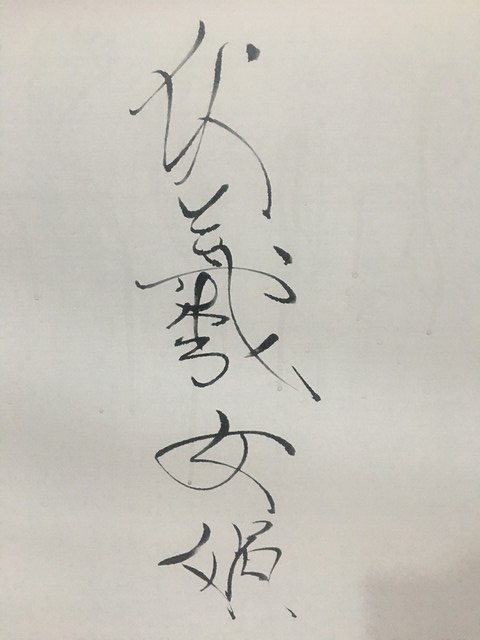 伏羲女娲